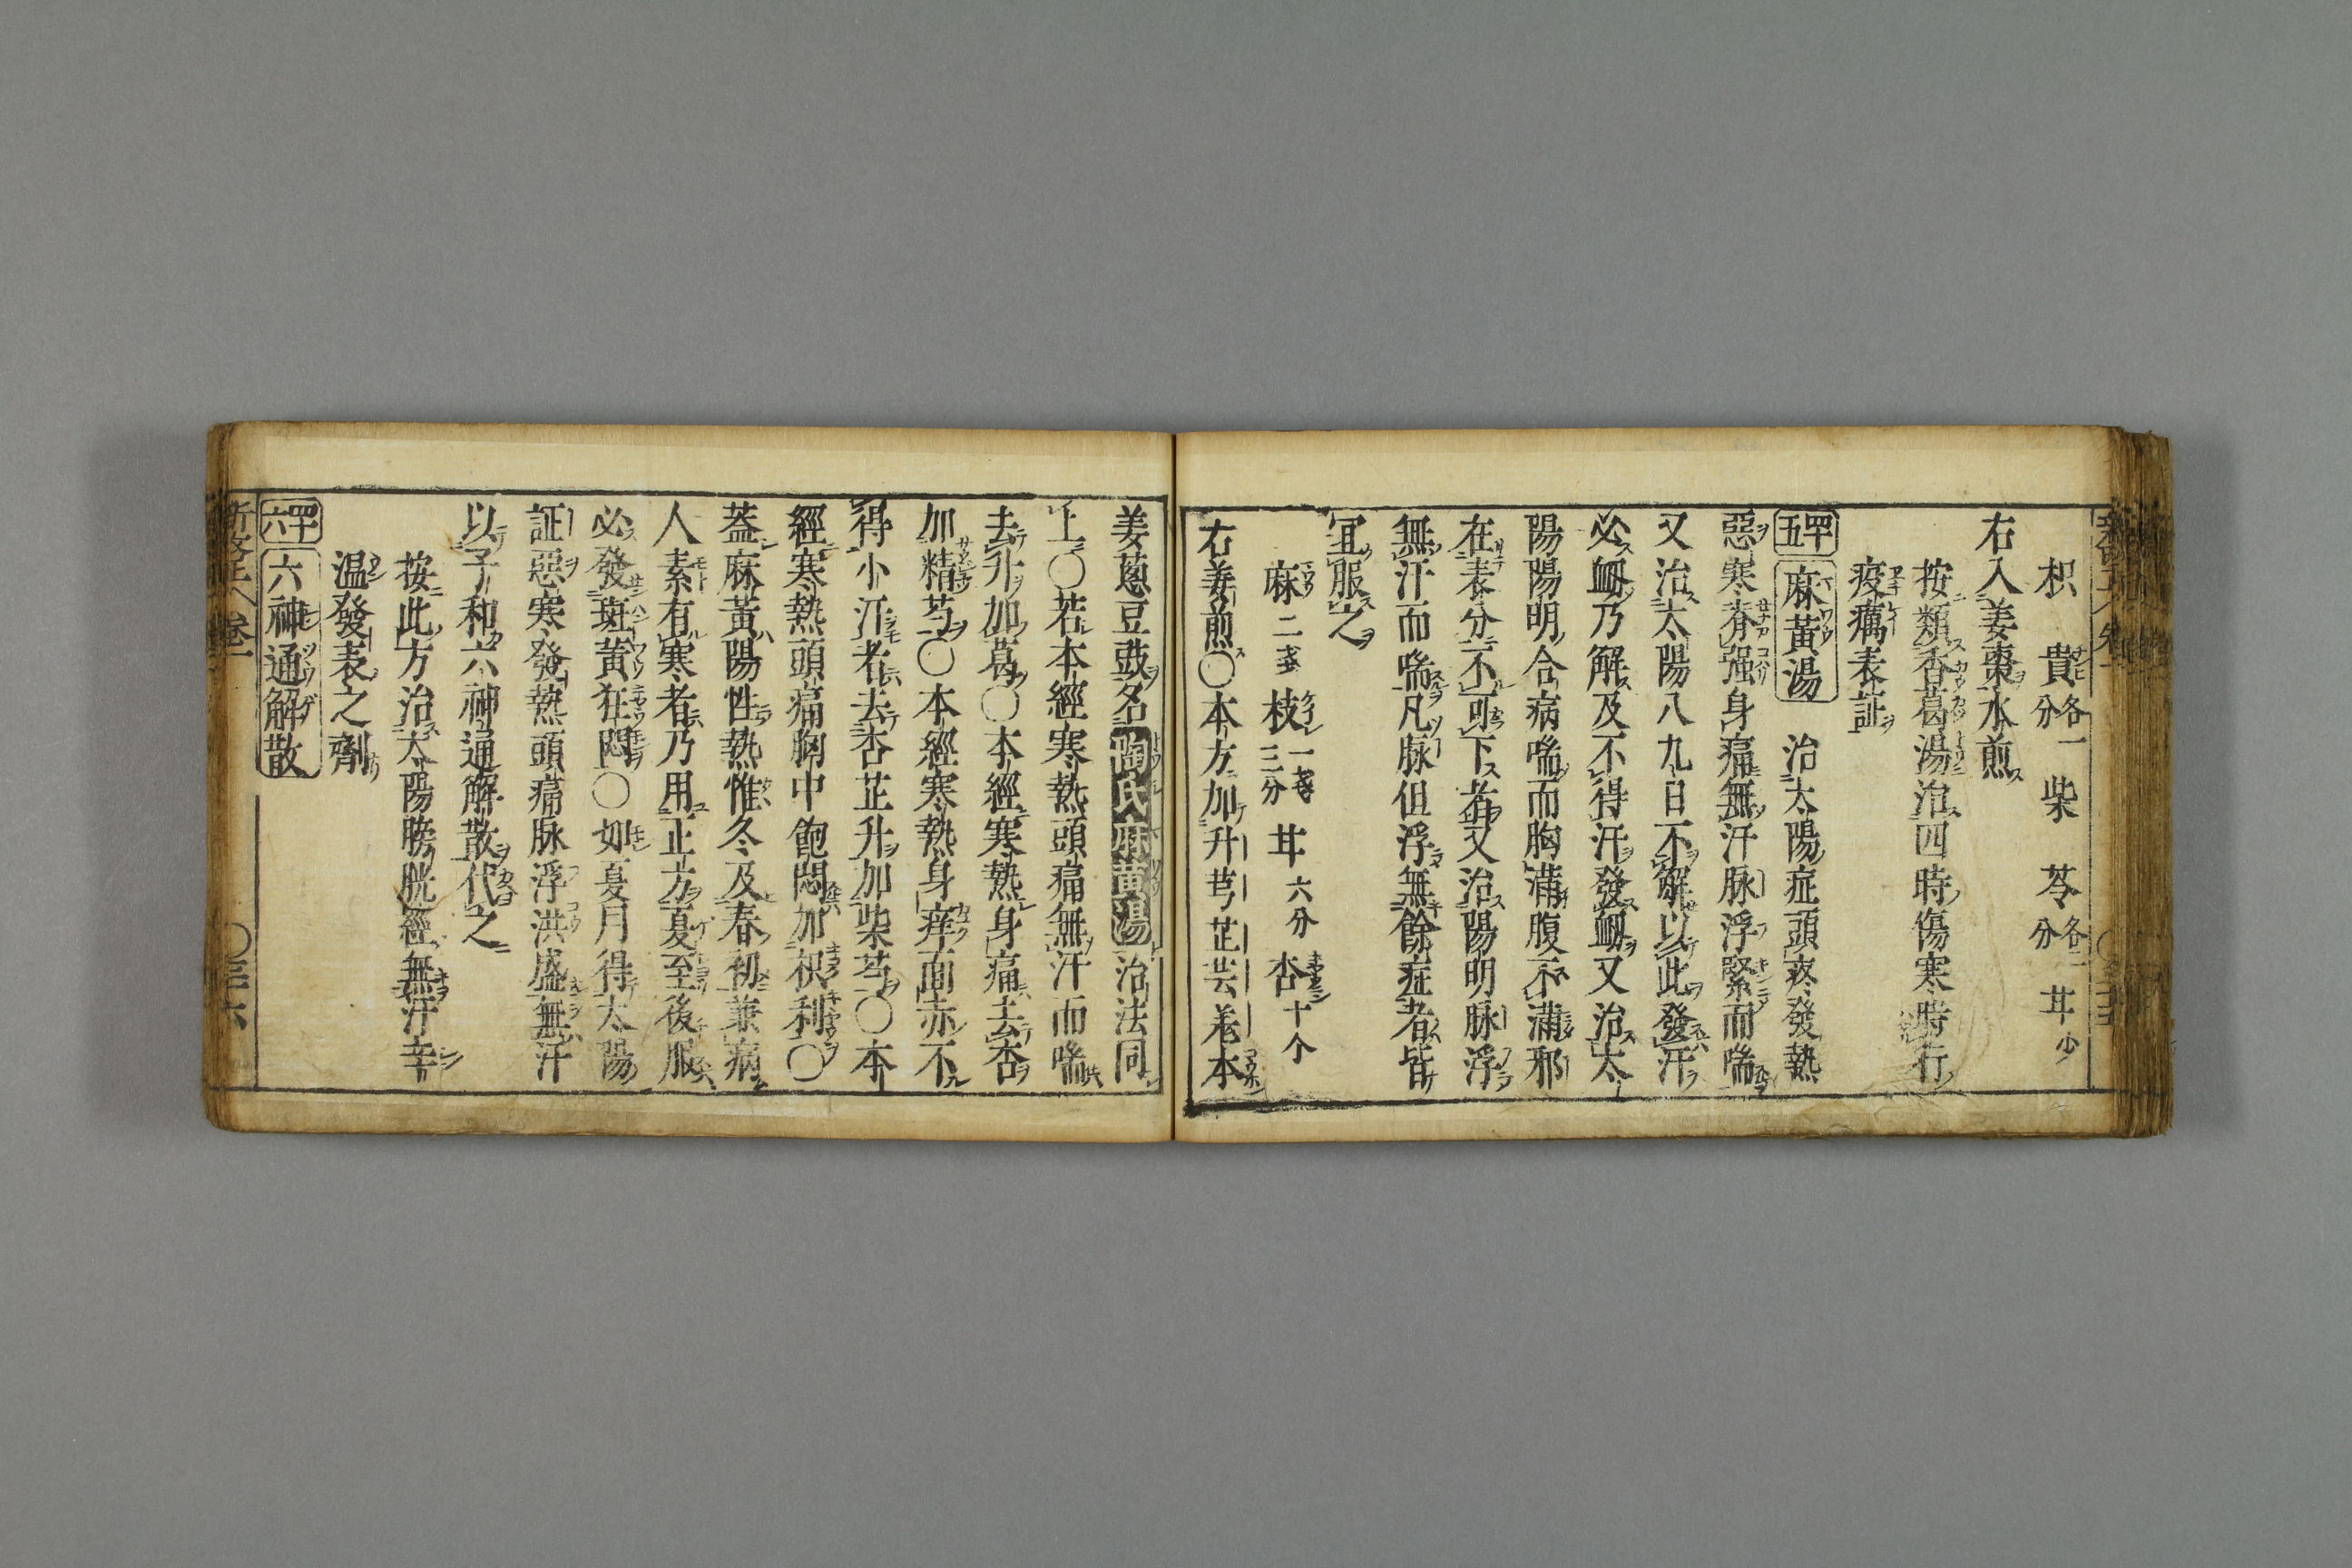 枳 貴各一分 柴 苓各二分 甘少
右入姜棗水煎
按類香葛湯治四時傷寒時行
疫癘表証
四十五 麻黃湯 治太陽症頭疼發熱
惡寒脊强身痛無汗脉浮緊而喘
又治太陽八九日不解以此發汗
必衂乃解及不得汗發衂又治太
陽陽明合病喘而胸滿腹不滿邪
在表分不可下者又治陽明脉浮
無汗而喘凡脉但浮無餘症者皆
宜服之
麻二戔 枝一戔三分 甘六分 杏十个
右姜煎〇本方加升芎芷芸羗本
姜葱豆豉名陶氏麻黃湯治法同
上〇若本經寒熱頭痛無汗而喘
去升加葛〇本經寒熱身痛去杏
加精芍〇本經寒熱身痒面赤不
得小汗者去杏芷升加柴芍〇本
經寒熱頭痛胸中飽悶加枳利〇
蓋麻黃陽性熱惟冬及春初兼病
人素有寒者乃用正方夏至後服
必發斑黃狂悶〇如夏月得太陽
証惡寒發熱頭痛脉浮洪盛無汗
以予和六神通解散代之
按此方治太陽膀胱經無汗辛
温發表之劑
四十六 六神通解散
卷一 〇三十六